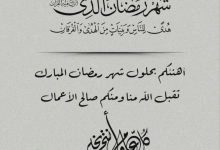 شهر رمضان الذي
هدى للناس وبينات من الهدى والفرقان
أهنئكم بحلول شهر رمضان المبارك
تقبل الله منا ومنكم صالح الأعمال
كل عام وأنتم بخير